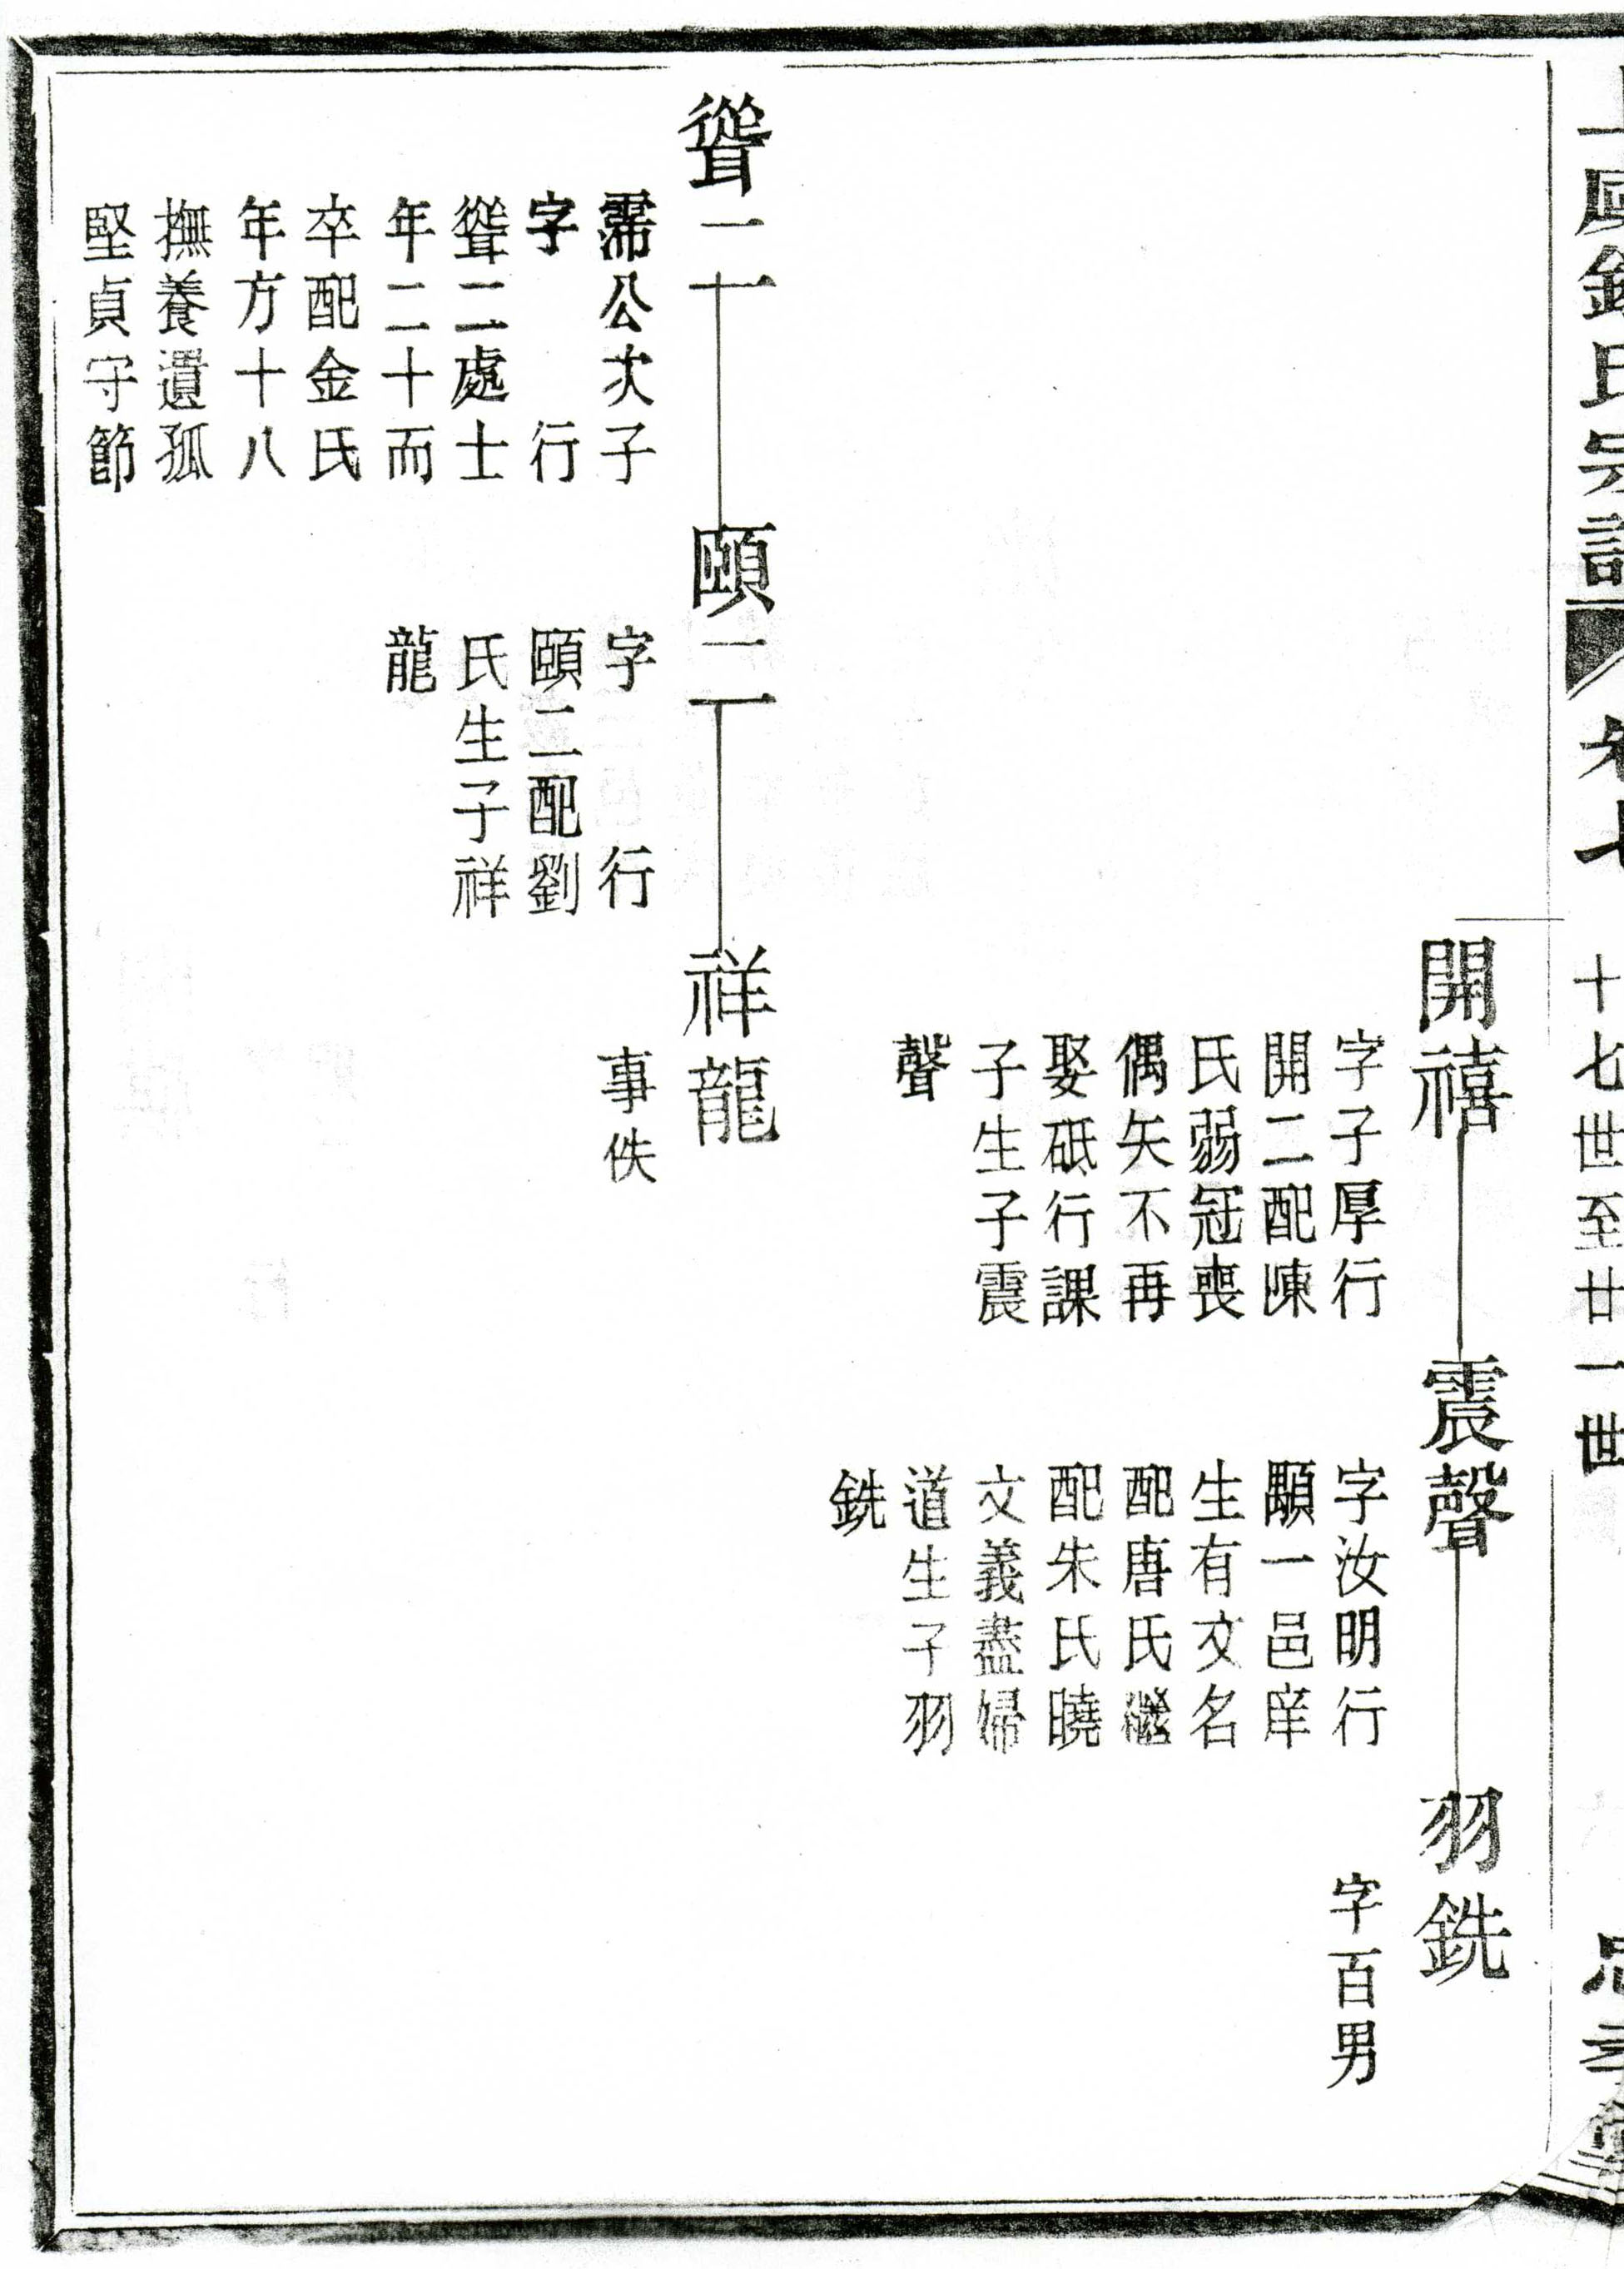 氏宗譜
卷七
十七世至廿一世
開禧
字子厚行
開二配陳
氏弱冠喪
偶矢不再
娶砥行課
子生子震
聲
震聲
字汝明行
顯一邑庠
生有文名
配唐氏繼
配朱氏曉
文義盡婦
道生子羽
銑
羽銑
字百男
聳二
霈公次子
字　行
聳二處士
年二十而
卒配金氏
年方十八
撫養遺孤
堅貞守節
頤二
字　行
頤二配劉
氏生子祥
龍
祥龍
事佚